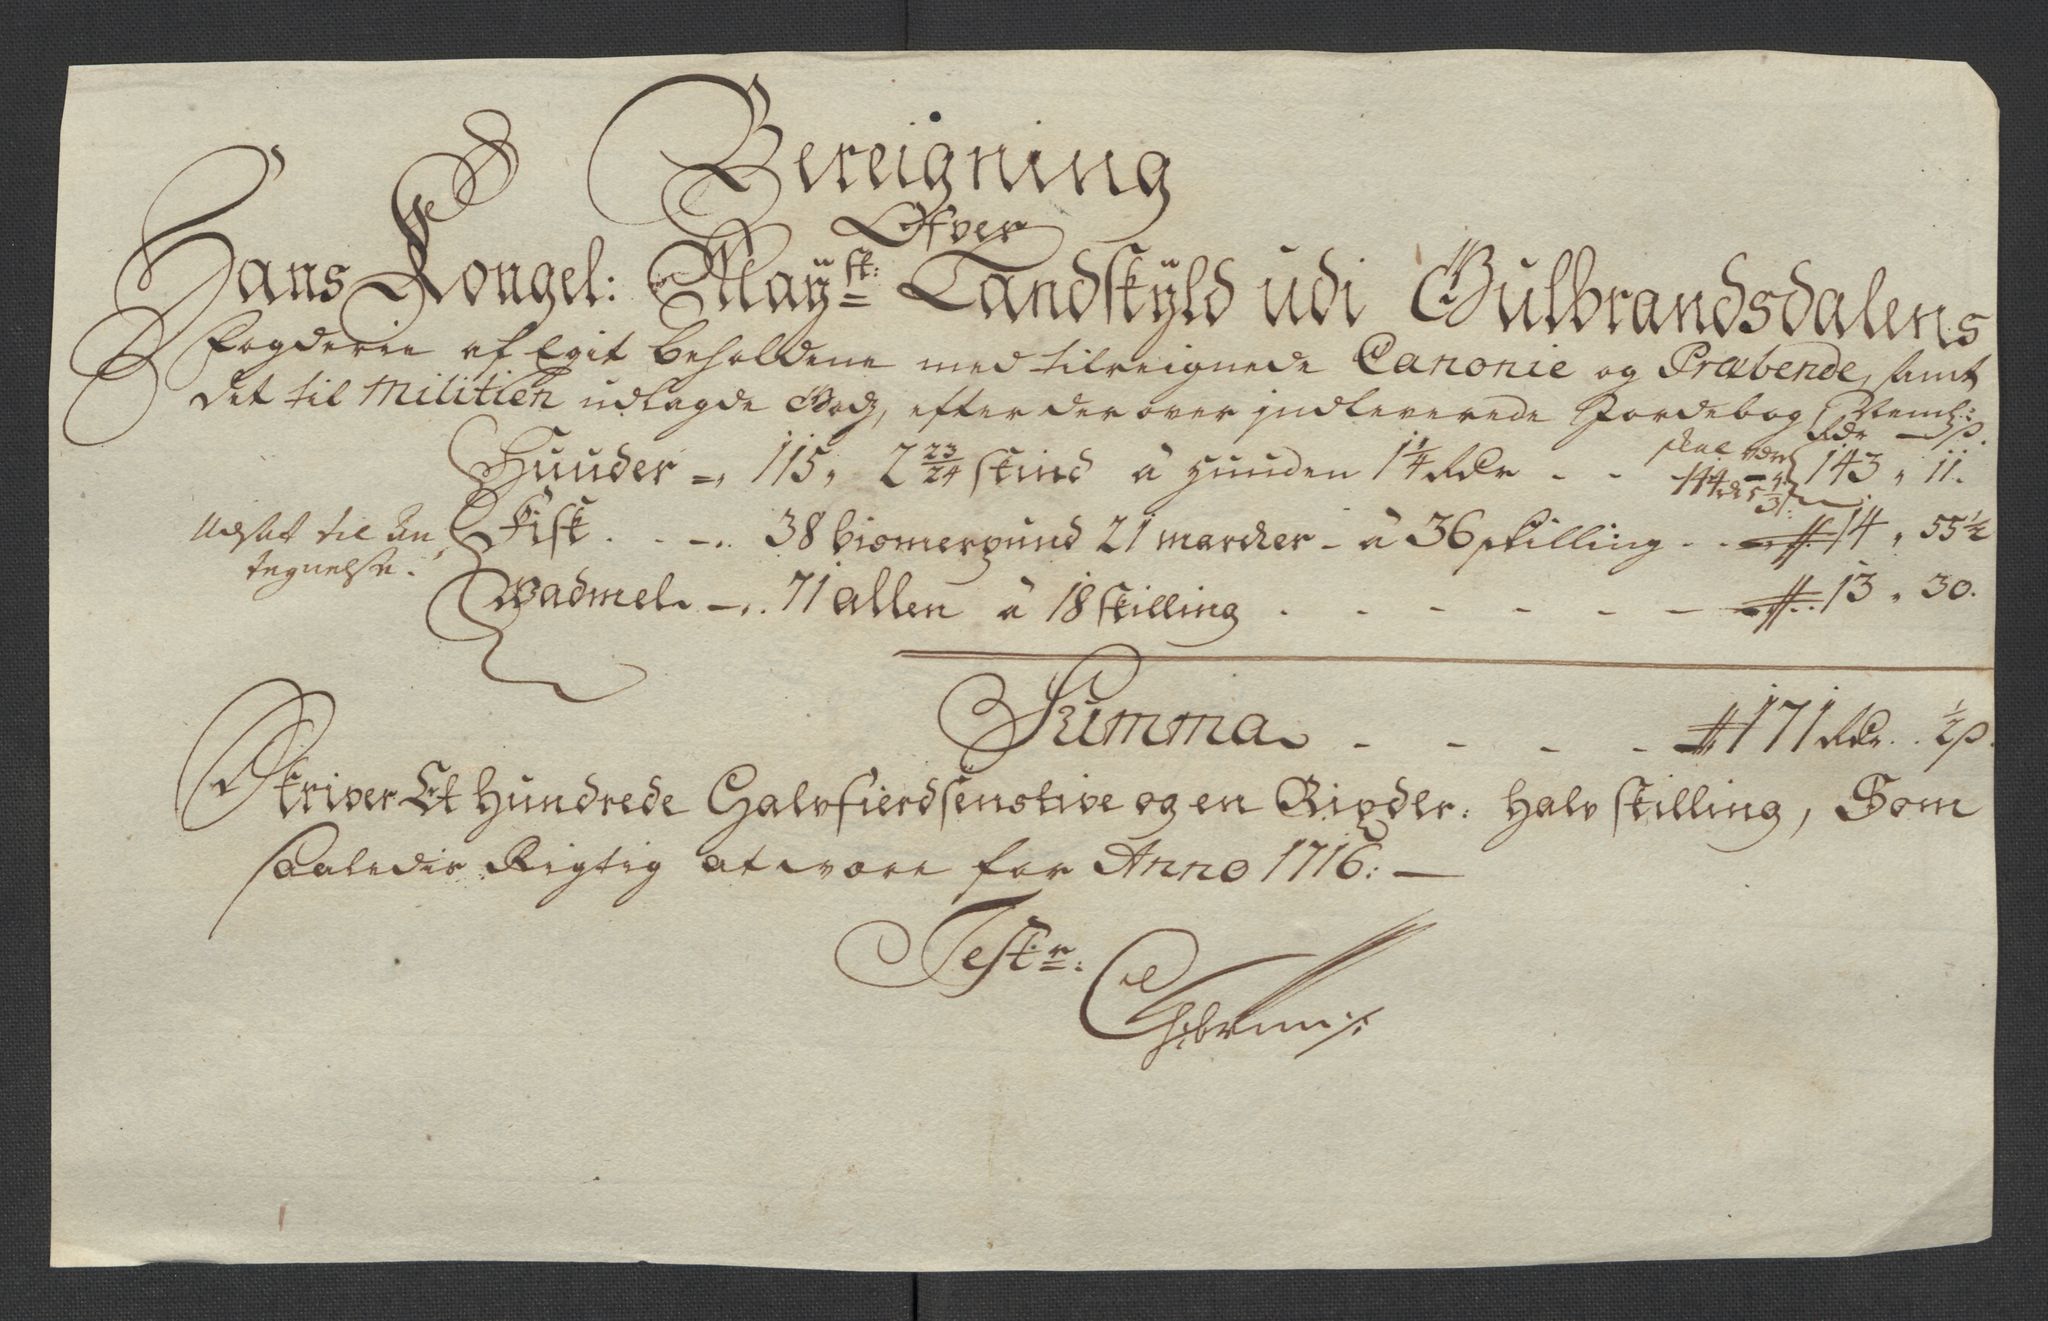 Bereigning
Ofver
Hans Kongel: Maÿst: Landskÿld udi Gulbrandsdalens
Fogderie af Egit beholdene med tilreignede Canonie og Præbende, samt
det til Militien udlagde Godz, efter der over indleverede Jordebog, Neml:
Rdr — ß.
Huuder —, 115, 2 23/24 skind â Huuden 1 1/4 Rdr - - 143 „ 11.
skal være
144
Fisk . . —.. 38 bismerpund 21 marcker - â 36 skilling - - 14 „ 55 1/2
Udsat til An„
tegnelse.
Wadmel. —.. 71 allen â 18 skilling . - - - - - 13 „ 30.
Summa - - - - 171 Rdr. 1/2 ß.
Skriver Et Hundrede Halvfierdsenstive og en Rixdr: Halv skilling, Som
saaledis Rigtig at være for Anno 1716: —
Test: